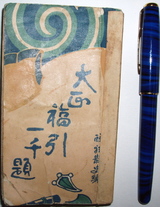 大正
福引
一千
題